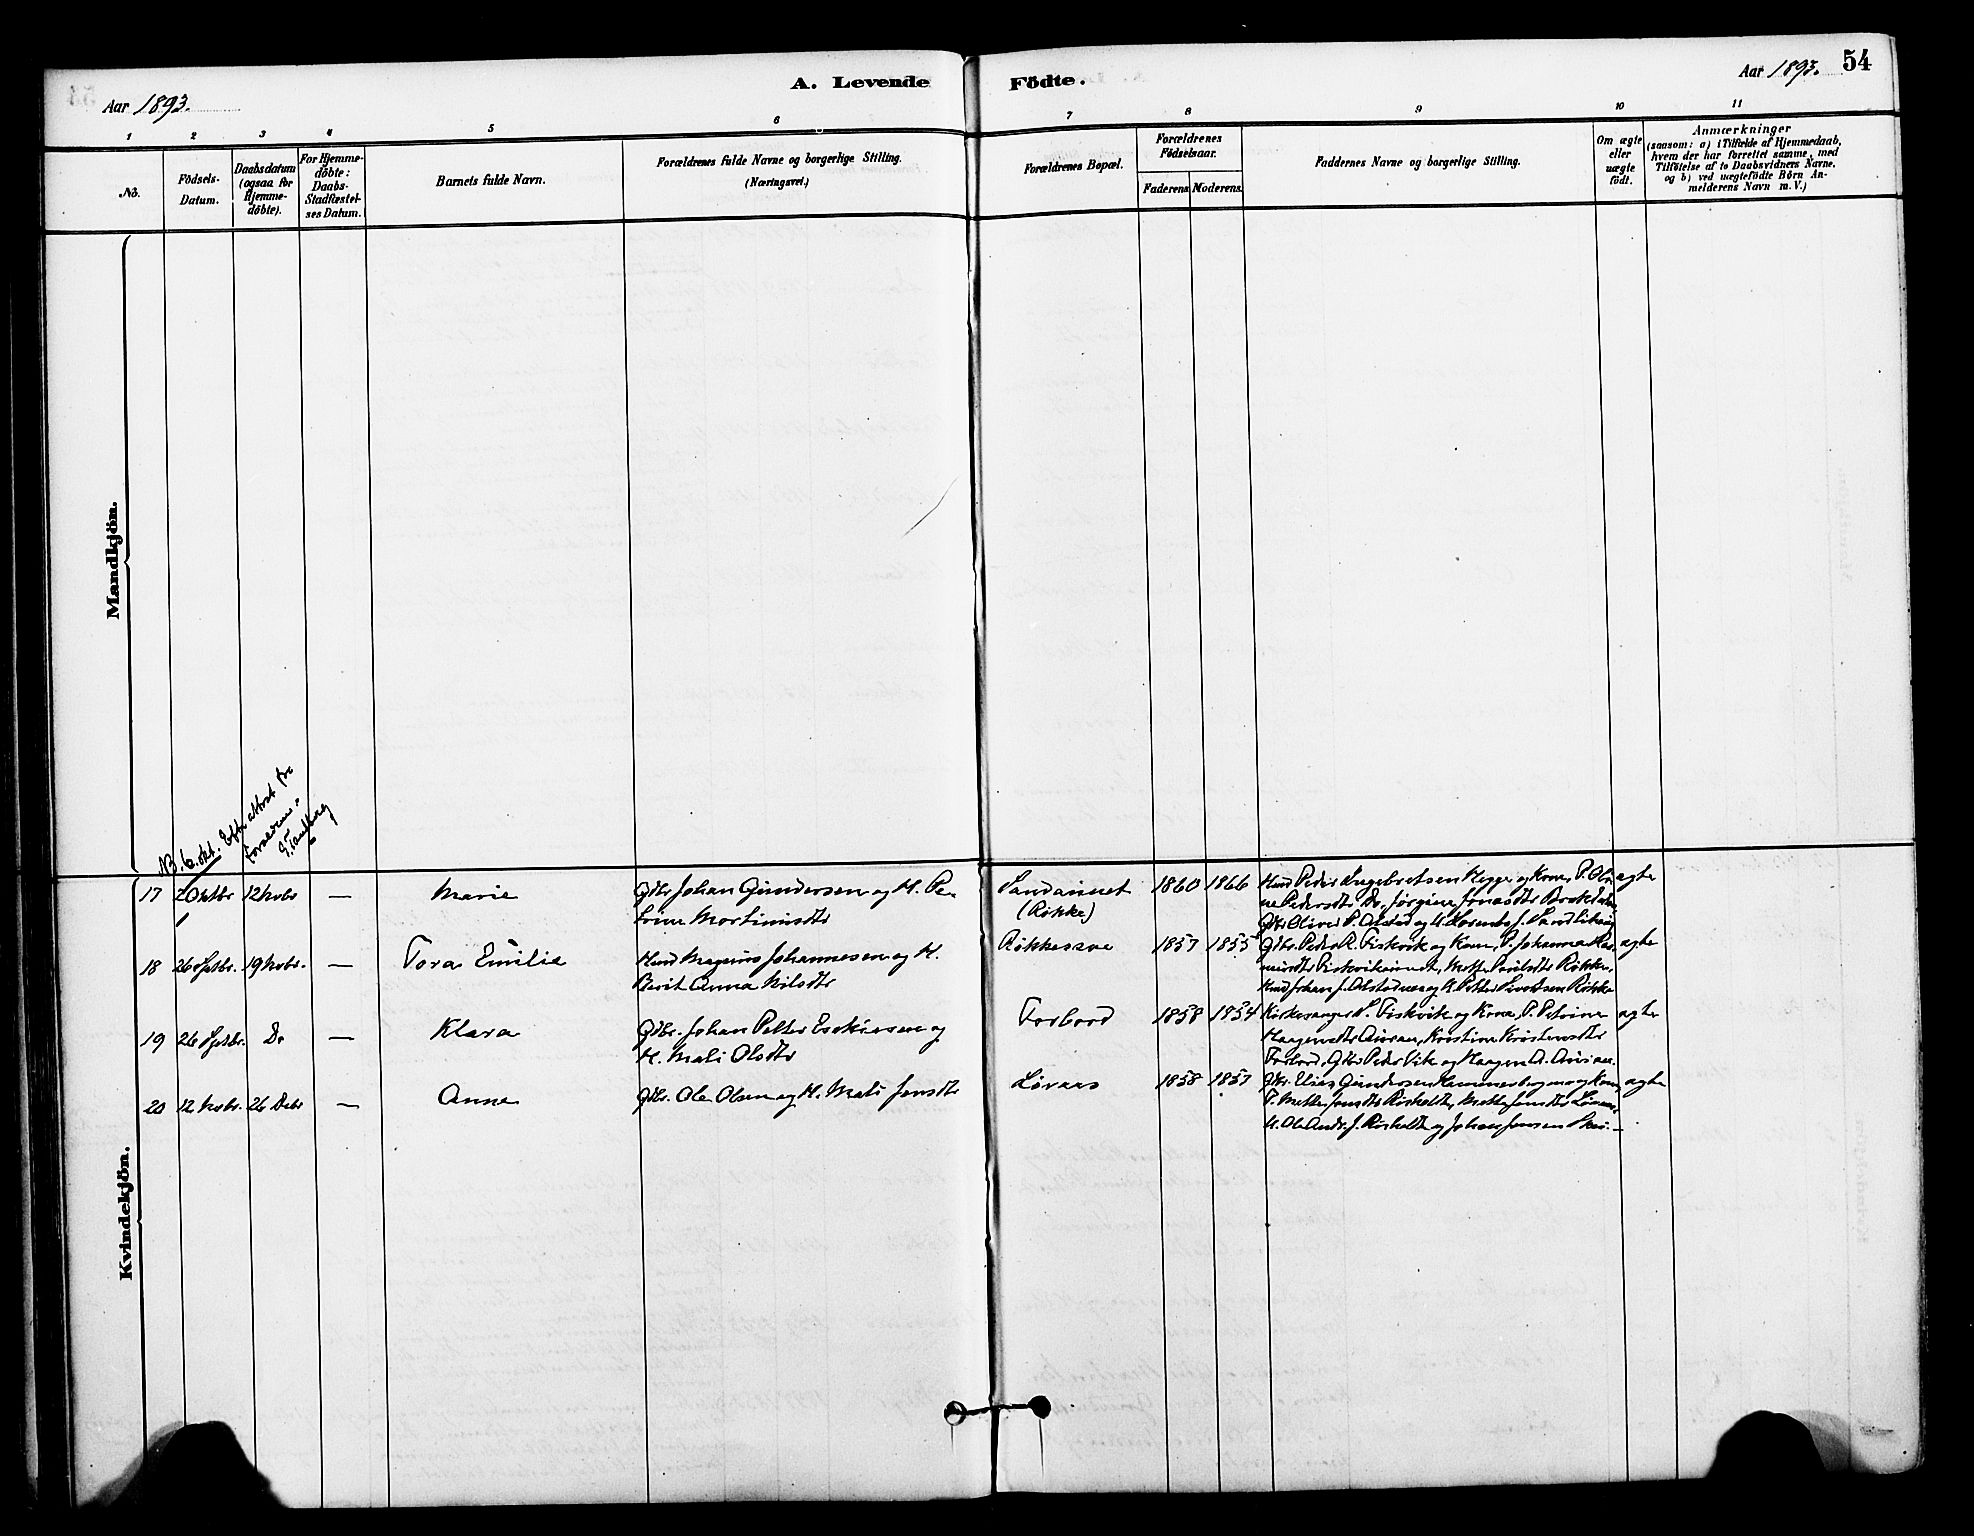 A. Levende Födte.
Aar 1893.
Aar 1893. 54
1 2 3 4 5 6 7 8 9 10 11
No.
Födsels-
Datum.
Daabsdatum
(ogsaa for
Hjemme-
döbte).
For Hjemme-
döbte:
Daabs-
Stadfæstel-
ses Datum.
Barnets fulde Navn.
Forældrenes fulde Navne og borgerlige Stilling.
(Næringsvei.)
Forældrenes Bopæl.
Forældrenes
Födselsaar.
Faderens. Moderens.
Faddernes Navne og borgerlige Stilling.
Om ægte
eller
uægte
födt.
Anmærkninger
(saasom: a) i Tilfælde af Hjemmedaab,
hvem der har forrettet samme, med
Tilføielse af to Daabsvidners Navne.
og b) ved uægtefödte Börn An-
melderens Navn m. V.)
Mandkjön.
NB. 6. okt. Eft. attest fra
foreldrene.
Kvindekjön.
17 2 Oktbr 12 Novbr — Marie
Gdbr Johan Gundersen og H. Pe-
trine Mortinusdtr
Sandaunet
(Røkke)
1860 1866
Husmd Peder Ingebretsen Hegge og Kone, P. Oli-
ne Pedersdtr Do, Jørgine Jonasdtr
Gdbr Oliver P. Alstad og
ægte
18 26 Septbr. 19 Novbr. — Tora Emilie
Husmd Magnus Johannesen og H.
Berit Anna Nilsdtr
Røkkesæe
1857 1855
Gdbr. Peder R. Fiskvik og Kone, P. Johanna Ras-
musdtr Fiskvikaunet, Mette Paulsdtr Røkke,
Husmd Johan J. Alstad og U. Petter Sivertsen Røkke
ægte
19 26 Septbr. Do — Klara
Gdbr. Johan Petter Eskilsen og
H. Mali Olsdtr
Forbord
1858 1854
Kirkesanger L. Fiskvik og Kone, P. Petrine
Haagensdtr Auran, Kristine Kristensdtr
Forbord, Gdbr Peder Vik og Haagen A. Auran.
ægte
20 12 Novbr. 26 Decbr — Anna
Gdbr. Ole Olsen og H. Mali Jensdtr
Løvaas
1858 1857
Gdbr. Elias Gundersen Hammerbergmo og Kone,
P. Mette Jensdtr Risholdt, Mette Jensdtr Løvaas,
U. Ole Andr. J. Risholdt og Johan Jensen
ægte